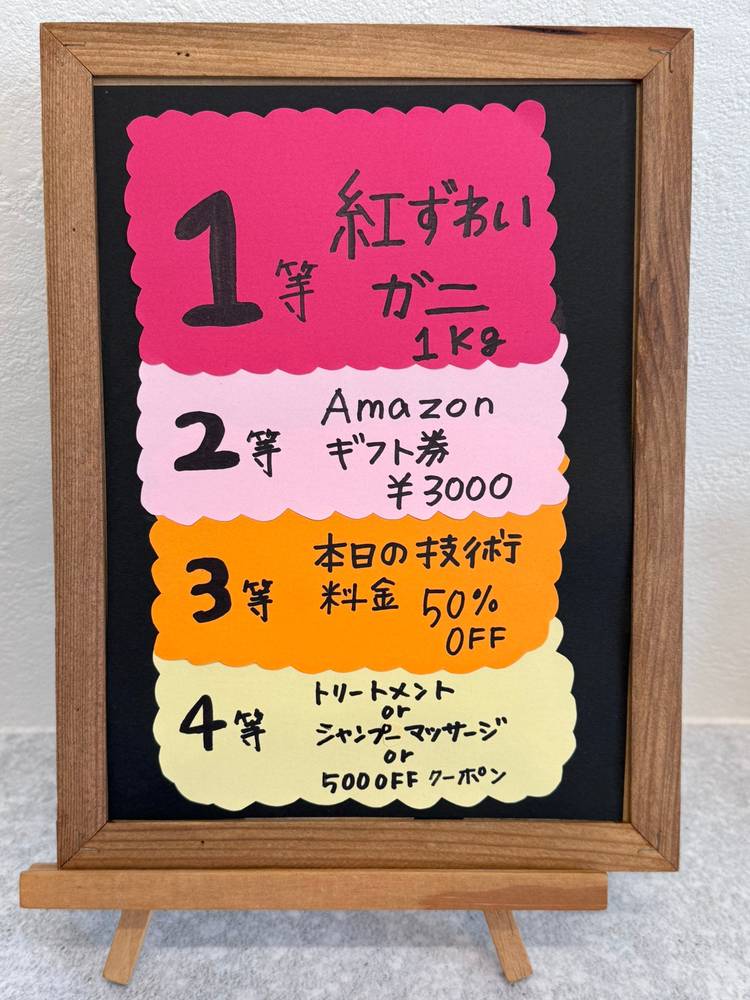 1等 紅ずわい
ガニ
1Kg
2等 Amazon
ギフト券
¥3000
3等 本日の技術
料金 50%
OFF
4等 トリートメント
or
シャンプーマッサージ
or
500OFF クーポン